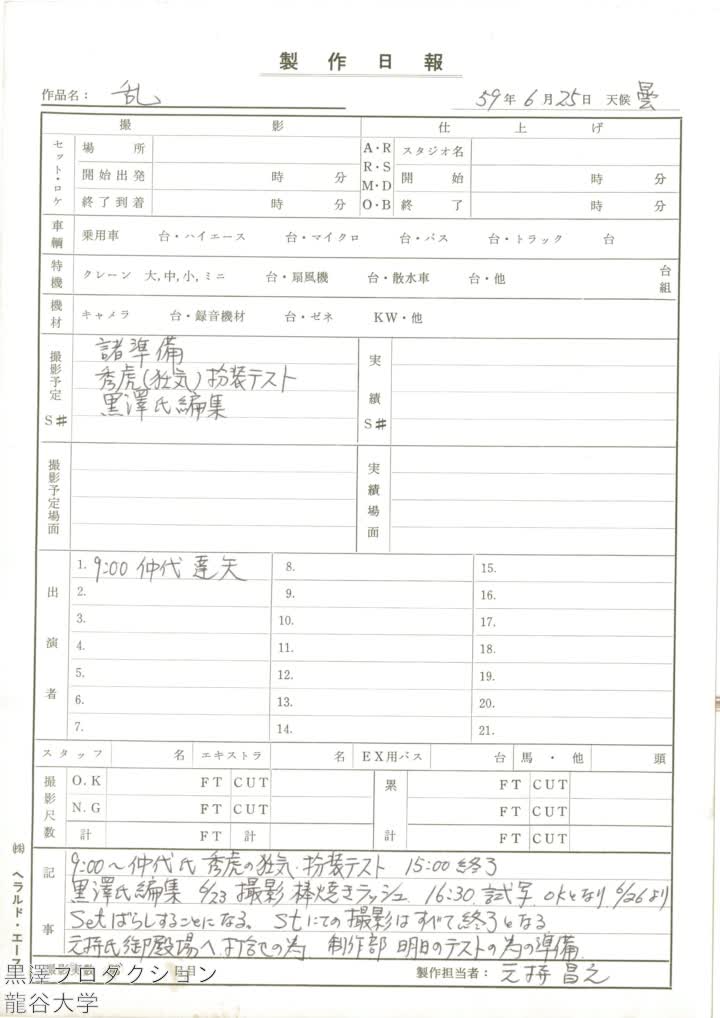 製作日報
作品名: 乱
59年 6月 25日 天候 曇
撮影 仕上げ
セット・ロケ 場所 A・R スタジオ名
開始出発 時 分 R・S M・D 開始 時 分
終了到着 時 分 O・B 終了 時 分
車輌 乗用車 台・ハイエース 台・マイクロ 台・バス 台・トラック 台
特機 クレーン 大,中,小,ミニ 台・扇風機 台・散水車 台・他 台 組
機材 キャメラ 台・録音機材 台・ゼネ KW・他
撮影予定 S# 実績 S#
諸準備
秀虎(狂気)扮装テスト
黒澤氏編集
撮影予定場面 実績場面
出演者
1. 9:00 仲代達矢 8. 15.
2. 9. 16.
3. 10. 17.
4. 11. 18.
5. 12. 19.
6. 13. 20.
7. 14. 21.
スタッフ 名 エキストラ 名 EX用バス 台 馬・他 頭
撮影尺数 O.K FT CUT 累計 FT CUT
N.G FT CUT FT CUT
計 FT 計 FT CUT
記事
9:00~仲代氏 秀虎の狂気・扮装テスト 15:00 終了
黒澤氏編集 6/23 撮影 棒焼きラッシュ. 16:30. 試写. OKとなり. 6/26より
Setばらしすることになる。 Stにての撮影はすべて終了となる
元持氏御殿場へ打合せの為 制作部 明日のテストの為の準備.
撮影実数 日目 製作担当者: 元持昌之
㈱ ヘラルド・エース
黒澤プロダクション
龍谷大学